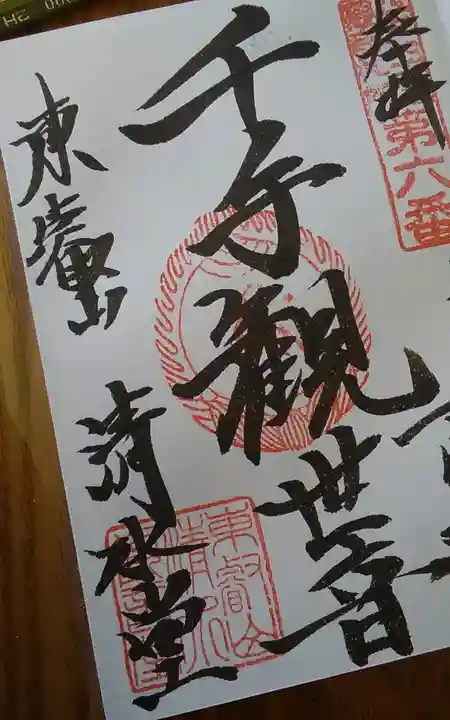 奉拝
第六番
千手觀世音
東叡山
清水堂
2H